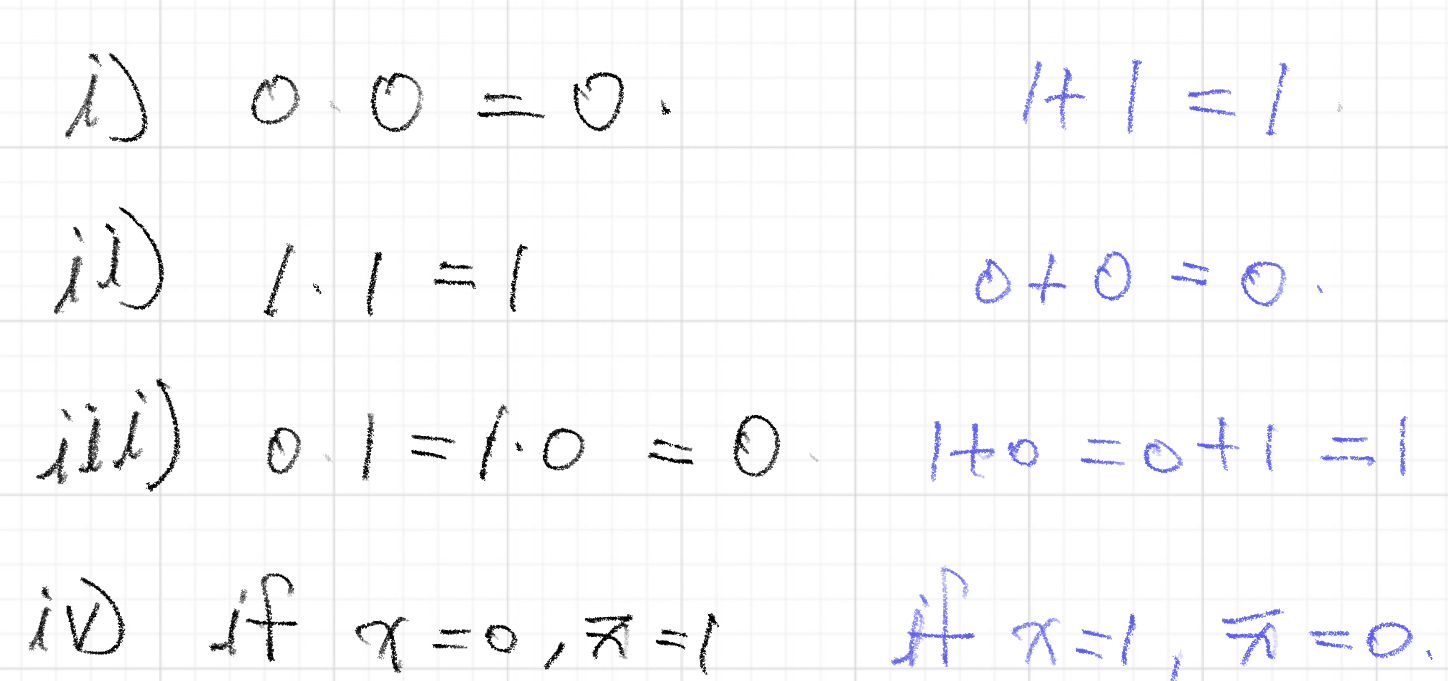 i) 0 · 0 = 0 . 1 + 1 = 1 .
ii) 1 · 1 = 1 0 + 0 = 0 .
iii) 0 · 1 = 1 · 0 = 0 . 1 + 0 = 0 + 1 = 1
iv) if x = 0 , x̄ = 1 if x = 1 , x̄ = 0 .